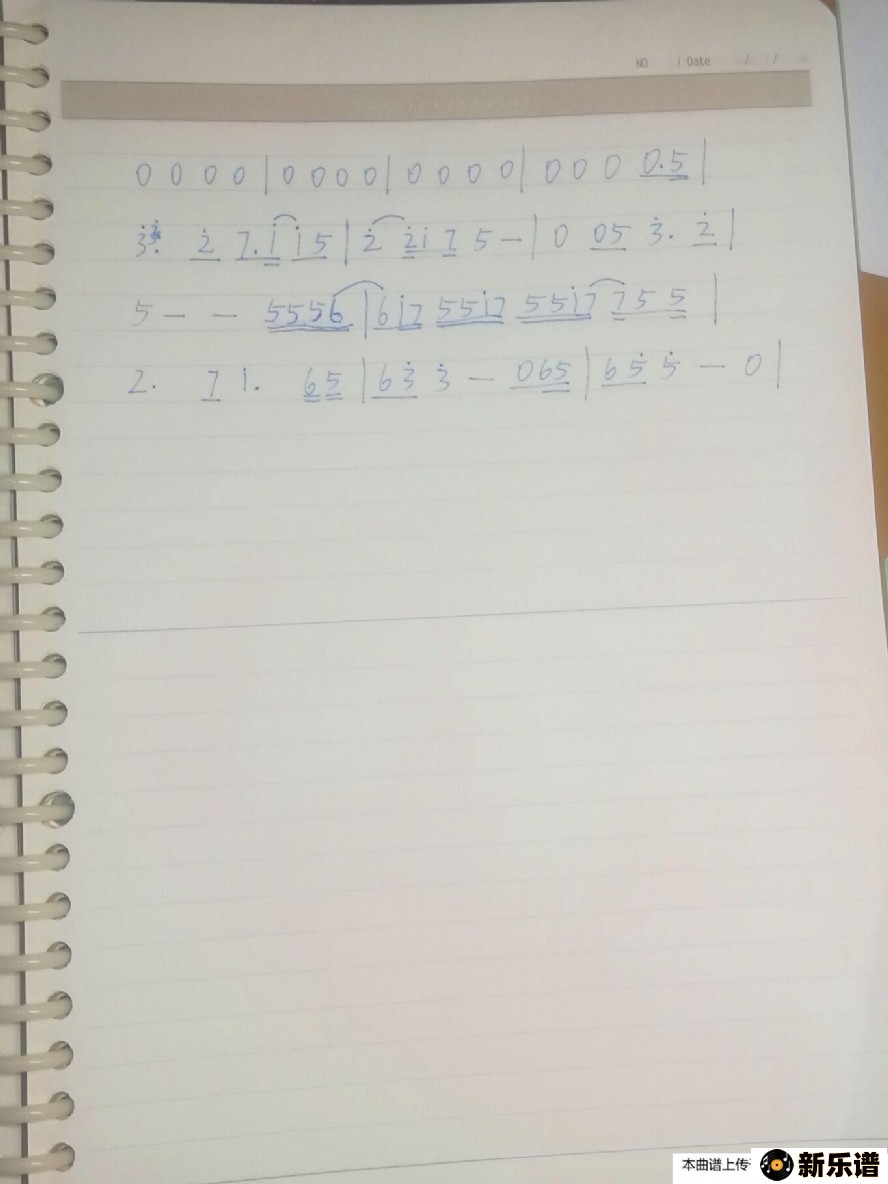 NO / Date / /
0 0 0 0 | 0 0 0 0 | 0 0 0 0 | 0 0 0 0.5 |
3̇. 2̇ 7.i i5 | 2̇ 2̇i 7 5 — | 0 05 3̇. 2̇ |
5 — — 5556 | 6i7 55i7 55i7 7 5 5 |
2. 7 i. 65 | 63̇ 3̇ — 065 | 65̇ 5̇ — 0 |
本曲谱上传 新乐谱